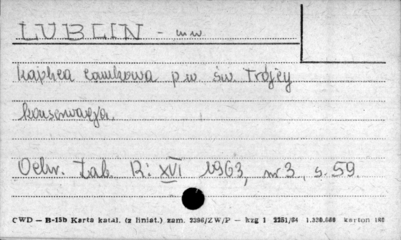 LUBLIN - m.w.
kaplica zamkowa p.w. św. Trójcy
konserwacja.
Ochr. Zab. R: XVI 1963, nr 3, s. 59
CWD — B-15b Karta katal. (z liniat.) zam. 2296/ZW/P — kzg 1 2251/54 karton